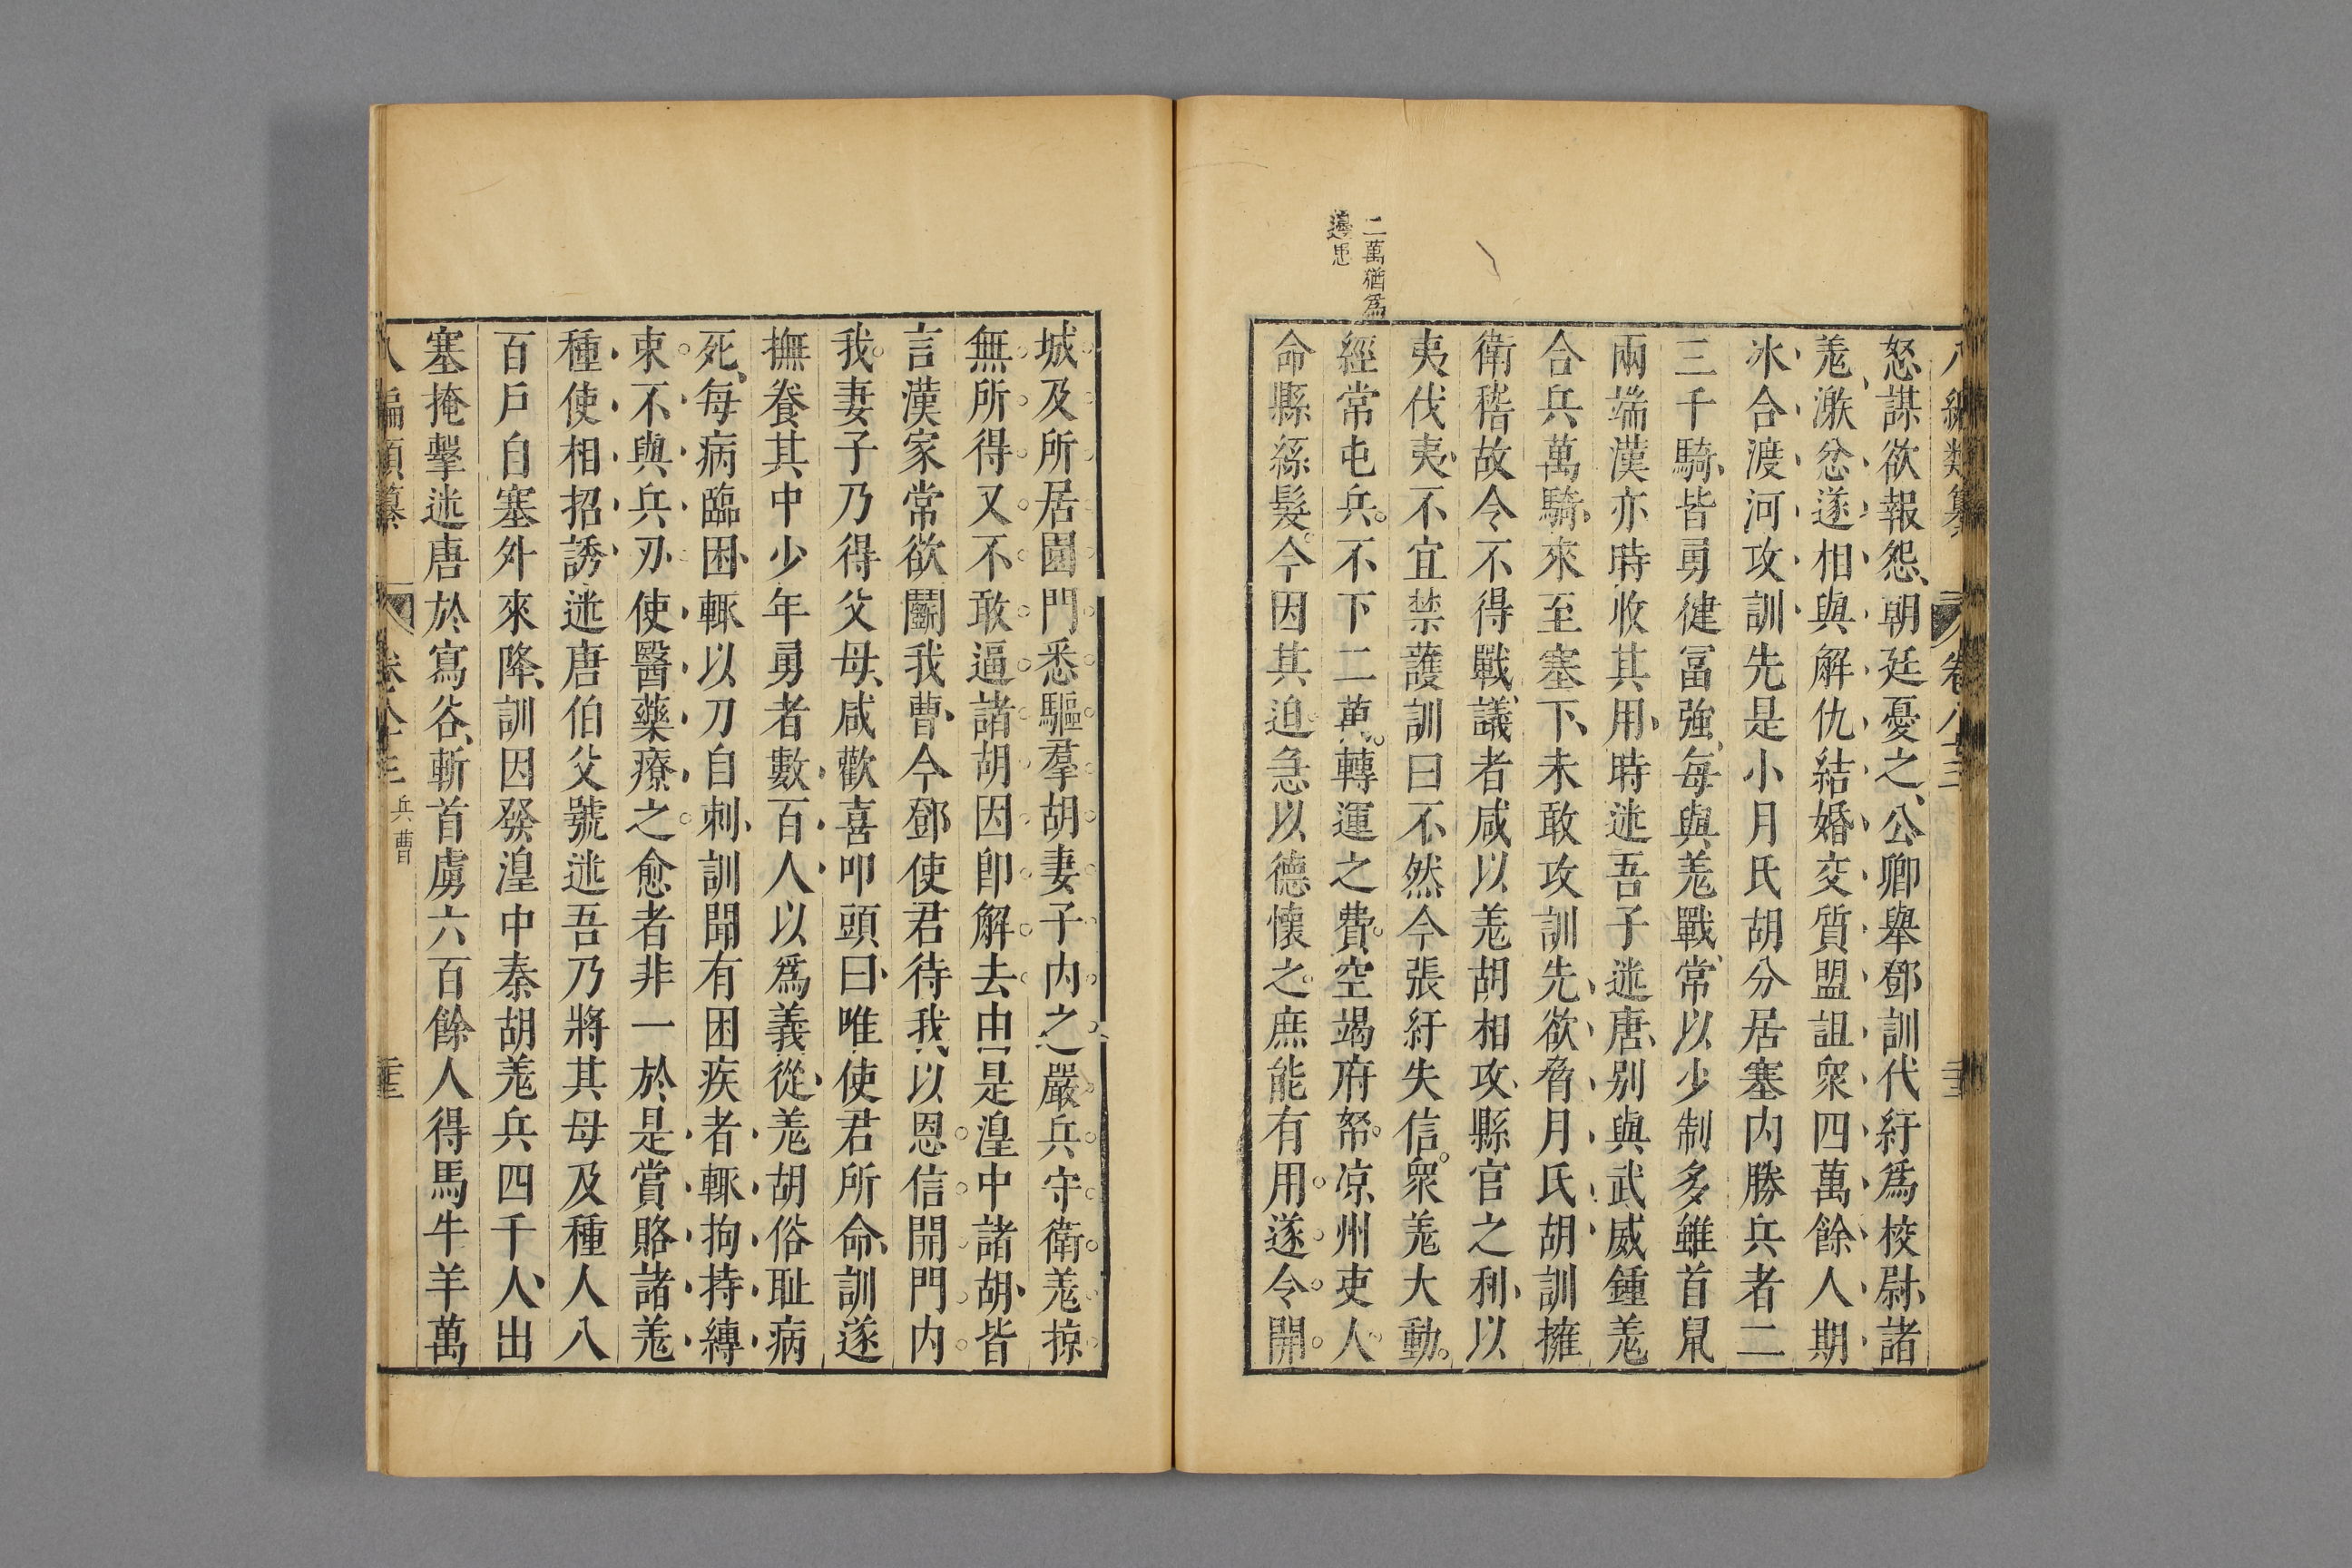 八編類纂 卷八十三
怒謀欲報怨朝廷憂之公卿舉鄧訓代紆爲校尉諸
羗激忿遂相與解仇結婚交質盟詛衆四萬餘人期
氷合渡河攻訓先是小月氏胡分居塞内勝兵者二
三千騎皆勇健冨強每與羗戰常以少制多雖首䑕
兩端漢亦時收其用時迷吾子迷唐别與武威鍾羗
合兵萬騎來至塞下未敢攻訓先欲脅月氏胡訓擁
衛稽故令不得戰議者咸以羗胡相攻縣官之利以
夷伐夷不宜禁護訓曰不然今張紆失信衆羗大動
經常屯兵不下二萬轉運之費空竭府帑凉州吏人
命縣絲髮今因其迫急以德懷之庶能有用遂令開
二萬猶爲
邊患
城及所居園門悉驅羣胡妻子内之嚴兵守衛羗掠
無所得又不敢逼諸胡因卽解去由是湟中諸胡皆
言漢家常欲鬭我曹今鄧使君待我以恩信開門内
我妻子乃得父母咸歡喜叩頭曰唯使君所命訓遂
撫養其中少年勇者數百人以爲義從羗胡俗耻病
死每病臨困輒以刀自刺訓聞有困疾者輒拘持縛
束不與兵刃使醫藥療之愈者非一於是賞賂諸羗
種使相招誘迷唐伯父號迷吾乃將其母及種人八
百戶自塞外來降訓因發湟中秦胡羗兵四千人出
塞掩擊迷唐於寫谷斬首虜六百餘人得馬牛羊萬
八編類纂 卷八十三 兵曹